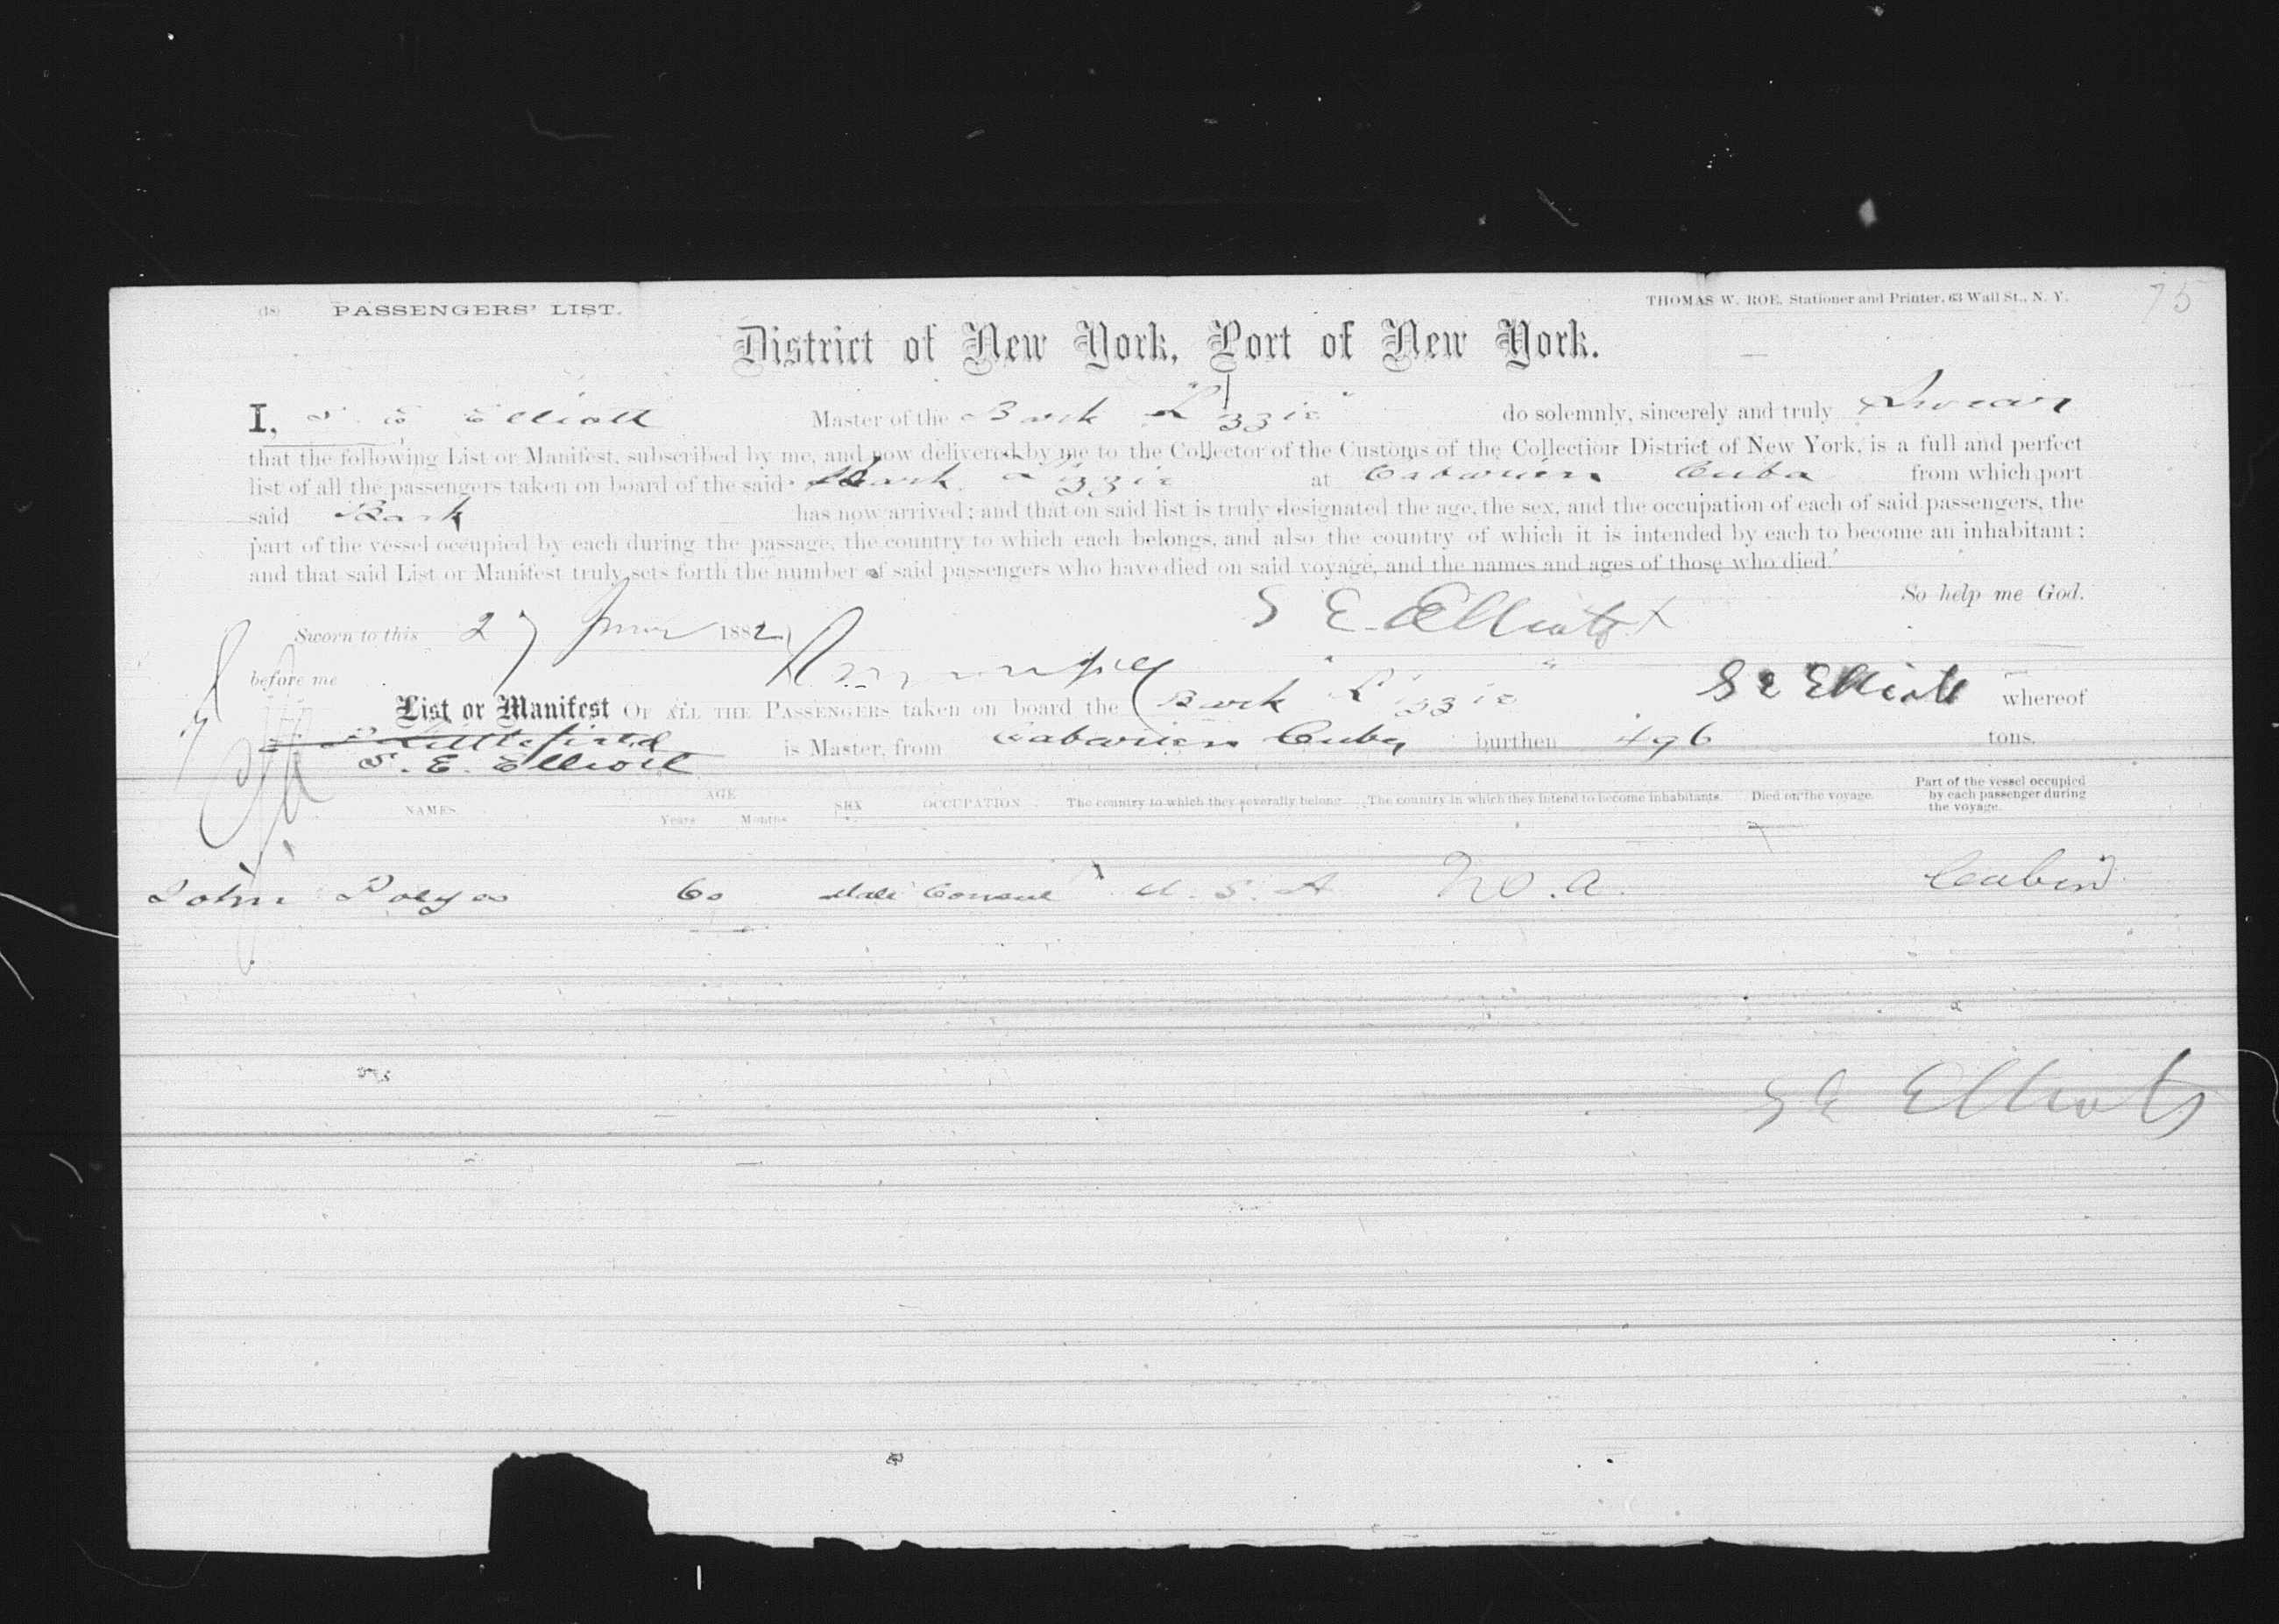 PASSENGERS' LIST.
THOMAS W. ROE, Stationer and Printer, 63 Wall St., N. Y.
75
District of New York, Port of New York.
I, S. E Elliott Master of the Bark "Lizzie" do solemnly, sincerely and truly Swear
that the following List or Manifest, subscribed by me, and now delivered by me to the Collector of the Customs of the Collection District of New York, is a full and perfect
list of all the passengers taken on board of the said Bark Lizzie at Cabarien Cuba from which port
said Bark has now arrived; and that on said list is truly designated the age, the sex, and the occupation of each of said passengers, the
part of the vessel occupied by each during the passage, the country to which each belongs, and also the country of which it is intended by each to become an inhabitant;
and that said List or Manifest truly sets forth the number of said passengers who have died on said voyage, and the names and ages of those who died.
So help me God.
S E. Elliott
Sworn to this 27 June 1882
before me
List or Manifest OF ALL THE PASSENGERS taken on board the Bark "Lizzie" S E Elliott whereof
S Littlefield
S. E. Elliott is Master, from Cabarien Cuba burthen 496 tons.
NAMES
AGE
Years Months
SEX OCCUPATION The country to which they severally belong. The country in which they intend to become inhabitants. Died on the voyage. Part of the vessel occupied by each passenger during the voyage.
John 60 Male Consul U. S. A Cabin
S E Elliott